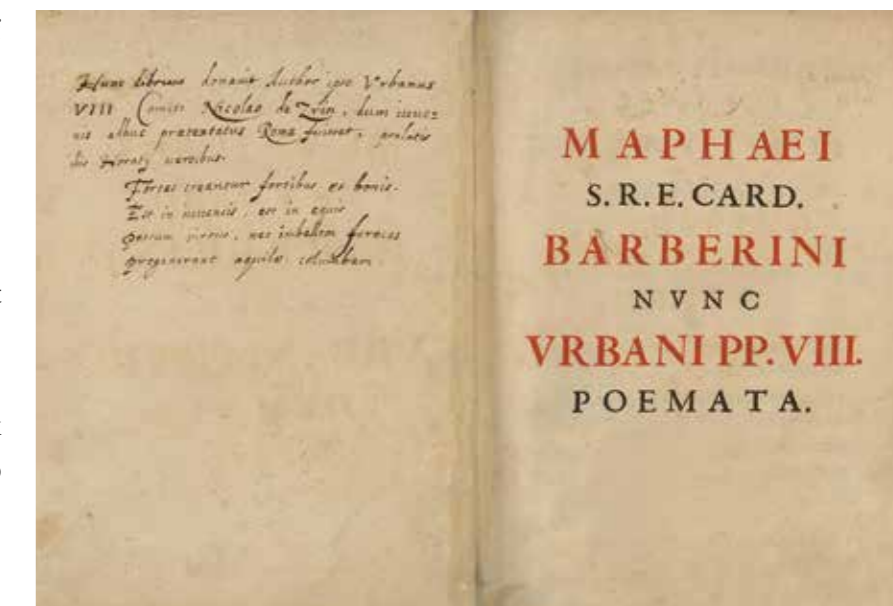 Hunc librum donauit Author ipse Vrbanus
VIII Comiti Nicolao de Zrin, dum iuue=
nis adhuc praesentatus Romae fuisset, prolatis
his Horatij uersibus.
Fortes creantur fortibus et bonis.
Est in iuuencis, est in equis
patrum uirtus, nec imbellem feroces
progenerant aquilae columbam.
MAPHAEI
S. R. E. CARD.
BARBERINI
NVNC
VRBANI PP. VIII.
POEMATA.